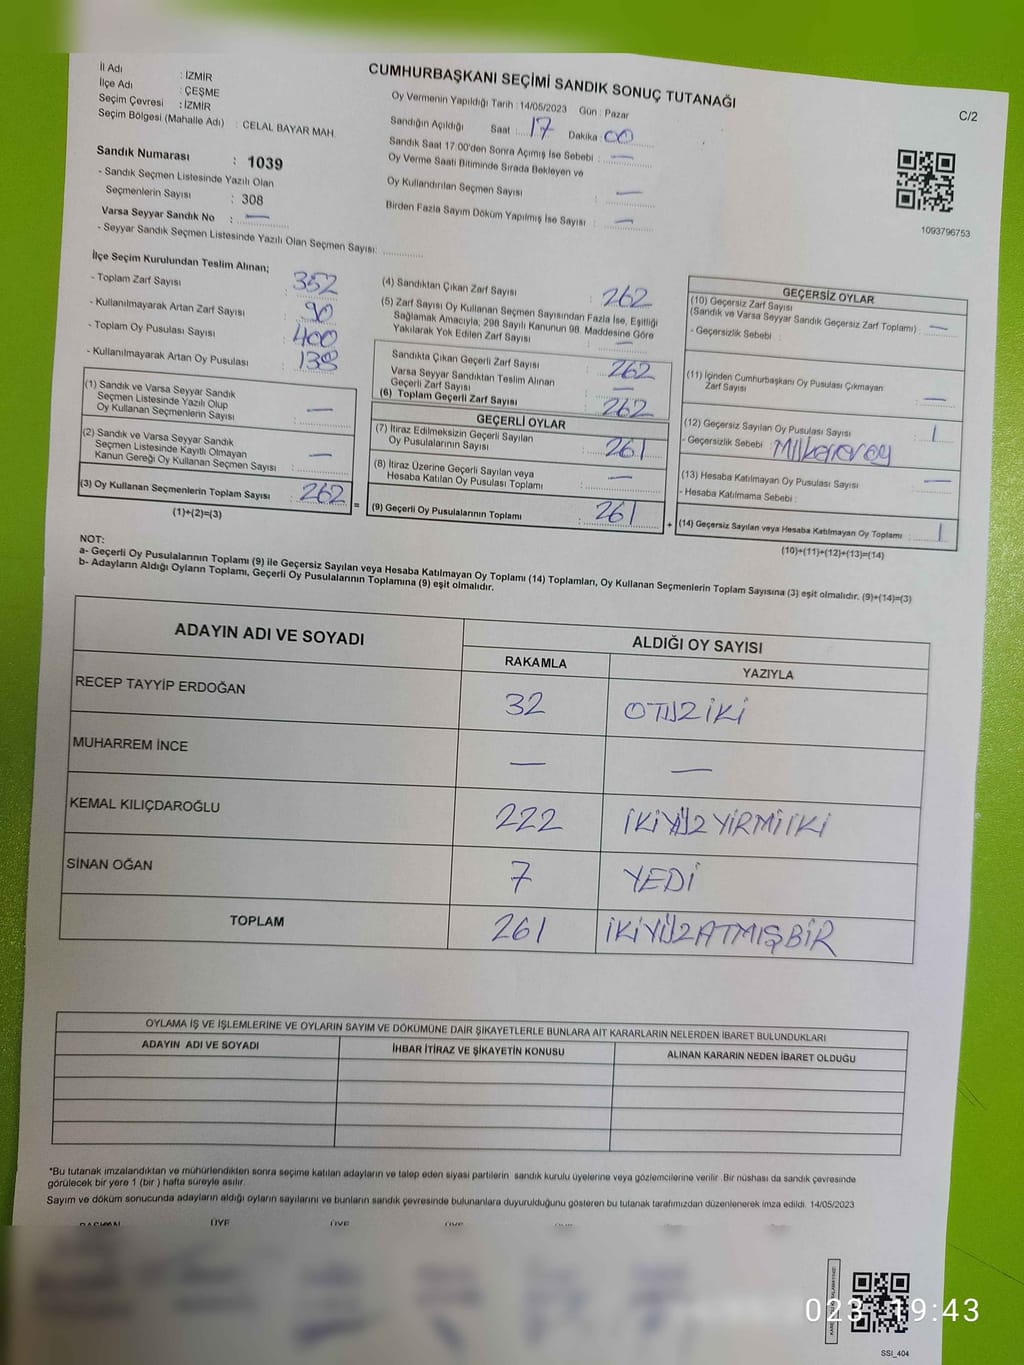 CUMHURBAŞKANI SEÇİMİ SANDIK SONUÇ TUTANAĞI
C/2
İl Adı : İZMİR
İlçe Adı : ÇEŞME
Seçim Çevresi : İZMİR
Seçim Bölgesi (Mahalle Adı) : CELAL BAYAR MAH.
Sandık Numarası : 1039
- Sandık Seçmen Listesinde Yazılı Olan
Seçmenlerin Sayısı : 308
Varsa Seyyar Sandık No : —
- Seyyar Sandık Seçmen Listesinde Yazılı Olan Seçmen Sayısı: ............
Oy Vermenin Yapıldığı Tarih : 14/05/2023 Gün : Pazar
Sandığın Açıldığı Saat : 17 Dakika : 00
Sandık Saat 17:00'den Sonra Açımış İse Sebebi : —
Oy Verme Saati Bitiminde Sırada Bekleyen ve
Oy Kullandırılan Seçmen Sayısı : —
Birden Fazla Sayım Döküm Yapılmış İse Sayısı : —
1093796753
İlçe Seçim Kurulundan Teslim Alınan;
- Toplam Zarf Sayısı : 352
- Kullanılmayarak Artan Zarf Sayısı : 90
- Toplam Oy Pusulası Sayısı : 400
- Kullanılmayarak Artan Oy Pusulası : 138
(1) Sandık ve Varsa Seyyar Sandık
Seçmen Listesinde Yazılı Olup
Oy Kullanan Seçmenlerin Sayısı : —
(2) Sandık ve Varsa Seyyar Sandık
Seçmen Listesinde Kayıtlı Olmayan
Kanun Gereği Oy Kullanan Seçmen Sayısı : —
(3) Oy Kullanan Seçmenlerin Toplam Sayısı : 262
(1)+(2)=(3)
=
(4) Sandıktan Çıkan Zarf Sayısı : 262
(5) Zarf Sayısı Oy Kullanan Seçmen Sayısından Fazla İse, Eşitliği
Sağlamak Amacıyla; 298 Sayılı Kanunun 98. Maddesine Göre
Yakılarak Yok Edilen Zarf Sayısı : —
Sandıkta Çıkan Geçerli Zarf Sayısı : 262
Varsa Seyyar Sandıktan Teslim Alınan
Geçerli Zarf Sayısı : —
(6) Toplam Geçerli Zarf Sayısı : 262
GEÇERLİ OYLAR
(7) İtiraz Edilmeksizin Geçerli Sayılan
Oy Pusulalarının Sayısı : 261
(8) İtiraz Üzerine Geçerli Sayılan veya
Hesaba Katılan Oy Pusulası Toplamı : —
(9) Geçerli Oy Pusulalarının Toplamı : 261
+
GEÇERSİZ OYLAR
(10) Geçersiz Zarf Sayısı
(Sandık ve Varsa Seyyar Sandık Geçersiz Zarf Toplamı) : —
- Geçersizlik Sebebi :
(11) İçinden Cumhurbaşkanı Oy Pusulası Çıkmayan
Zarf Sayısı : —
(12) Geçersiz Sayılan Oy Pusulası Sayısı : 1
- Geçersizlik Sebebi :
(13) Hesaba Katılmayan Oy Pusulası Sayısı : —
- Hesaba Katılmama Sebebi :
(14) Geçersiz Sayılan veya Hesaba Katılmayan Oy Toplamı : 1
(10)+(11)+(12)+(13)=(14)
NOT:
a- Geçerli Oy Pusulalarının Toplamı (9) ile Geçersiz Sayılan veya Hesaba Katılmayan Oy Toplamı (14) Toplamları, Oy Kullanan Seçmenlerin Toplam Sayısına (3) eşit olmalıdır. (9)+(14)=(3)
b- Adayların Aldığı Oyların Toplamı, Geçerli Oy Pusulalarının Toplamına (9) eşit olmalıdır.
ADAYIN ADI VE SOYADI ALDIĞI OY SAYISI
RAKAMLA YAZIYLA
RECEP TAYYİP ERDOĞAN 32 OTUZ İKİ
MUHARREM İNCE — —
KEMAL KILIÇDAROĞLU 222 İKİYÜZ YİRMİ İKİ
SİNAN OĞAN 7 YEDİ
TOPLAM 261 İKİYÜZATMIŞBİR
OYLAMA İŞ VE İŞLEMLERİNE VE OYLARIN SAYIM VE DÖKÜMÜNE DAİR ŞİKAYETLERLE BUNLARA AİT KARARLARIN NELERDEN İBARET BULUNDUKLARI
ADAYIN ADI VE SOYADI İHBAR İTİRAZ VE ŞİKAYETİN KONUSU ALINAN KARARIN NEDEN İBARET OLDUĞU
*Bu tutanak imzalandıktan ve mühürlendikten sonra seçime katılan adayların ve talep eden siyasi partilerin sandık kurulu üyelerine veya gözlemcilerine verilir. Bir nüshası da sandık çevresinde
görülecek bir yere 1 (bir ) hafta süreyle asılır.
Sayım ve döküm sonucunda adayların aldığı oyların sayılarını ve bunların sandık çevresinde bulunanlara duyurulduğunu gösteren bu tutanak tarafımızdan düzenlenerek imza edildi. 14/05/2023
BAŞKAN ÜYE ÜYE ÜYE
023 19:43
SSI_404